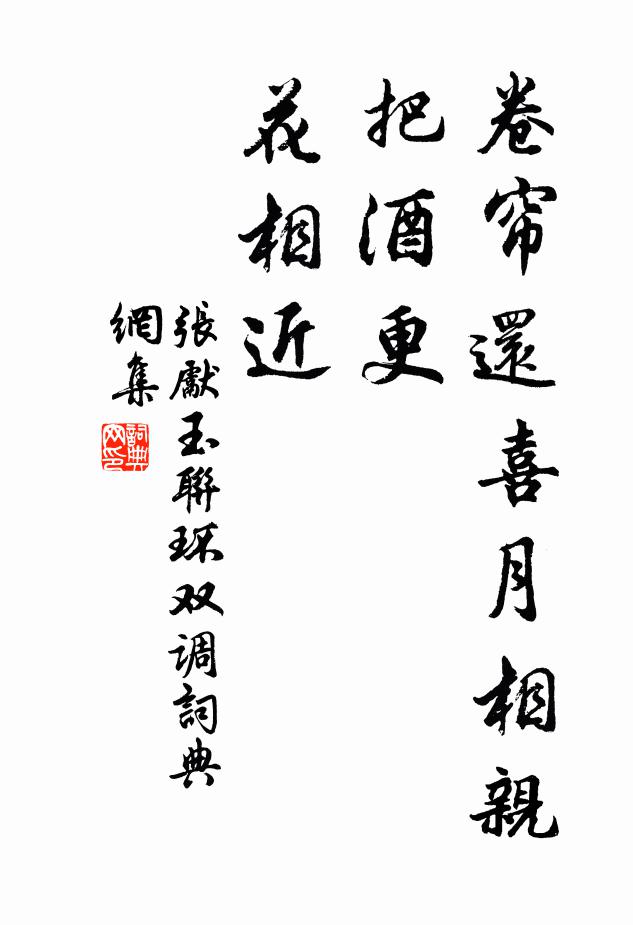 卷帘還喜月相親
把酒更
花相近
張獻玉聯环双调詞典
網集
詞典
网印